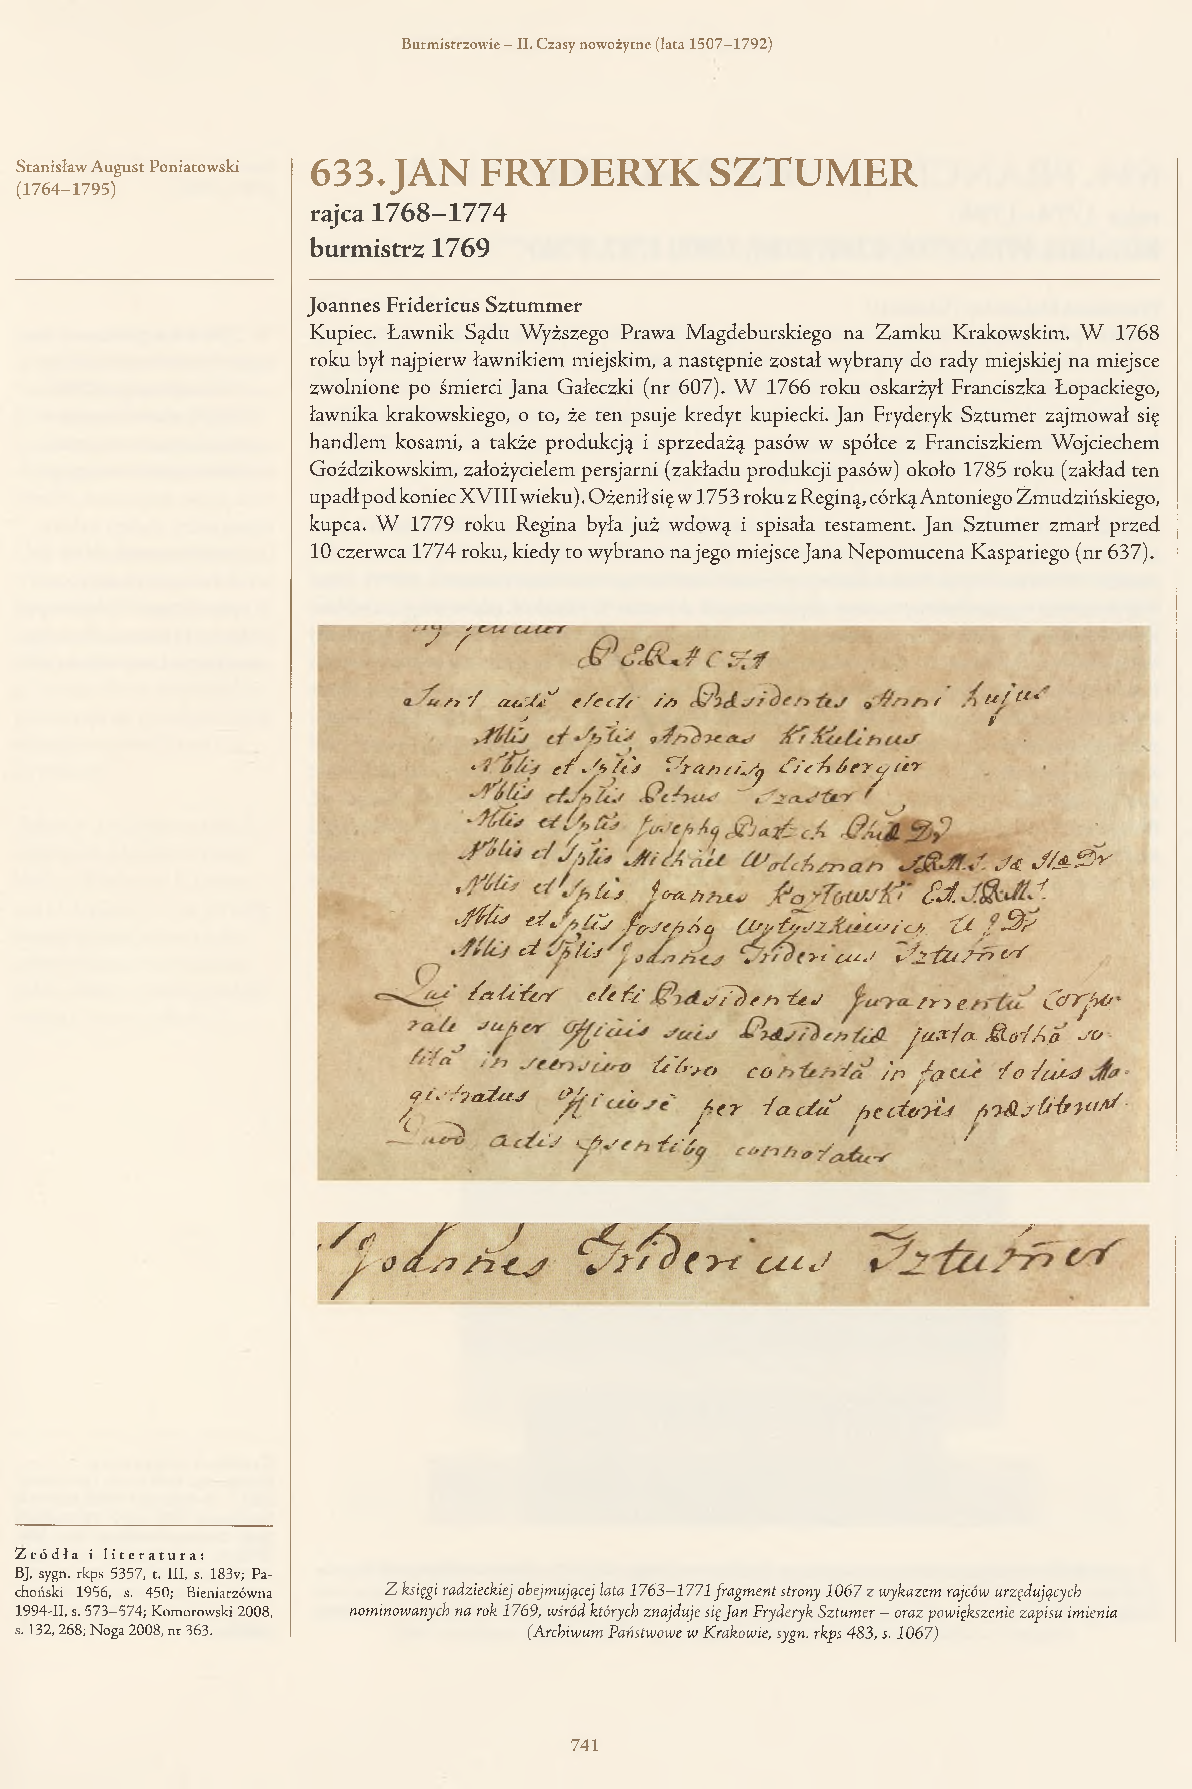 Burmistrzowie – II. Czasy nowożytne (lata 1507–1792)
Stanisław August Poniatowski
(1764–1795)
633. JAN FRYDERYK SZTUMER
rajca 1768–1774
burmistrz 1769
Joannes Fridericus Sztummer
Kupiec. Ławnik Sądu Wyższego Prawa Magdeburskiego na Zamku Krakowskim. W 1768
roku był najpierw ławnikiem miejskim, a następnie został wybrany do rady miejskiej na miejsce
zwolnione po śmierci Jana Gałeczki (nr 607). W 1766 roku oskarżył Franciszka Łopackiego,
ławnika krakowskiego, o to, że ten psuje kredyt kupiecki. Jan Fryderyk Sztumer zajmował się
handlem kosami, a także produkcją i sprzedażą pasów w spółce z Franciszkiem Wojciechem
Goździkowskim, założycielem persjarni (zakładu produkcji pasów) około 1785 roku (zakład ten
upadł pod koniec XVIII wieku). Ożenił się w 1753 roku z Reginą, córką Antoniego Żmudzińskiego,
kupca. W 1779 roku Regina była już wdową i spisała testament. Jan Sztumer zmarł przed
10 czerwca 1774 roku, kiedy to wybrano na jego miejsce Jana Nepomucena Kaspariego (nr 637).
PERACTA
Sunt electi in Præsidentes Anni hujus
Nblis et Sptlis Andreas Kikulinus
Nblis et Sptlis Eichbergier
Nblis et Sptlis Petrus Szaster
Nblis et Sptlis Josephq Bartsch Phiæ Dr
Nblis et Sptlis Michael Wolchman
Nblis et Sptlis Joannes Kozłowski
Nblis et Sptlis Josephq Wytyszkiewich U J Dr
Nblis et Sptlis Joannes Fridericus Szturner
Qui taliter eleti Præsidentes Juramentū Corpo-
rale super Officiis suis Præsidentiæ juxta Rothā so-
litā in libro contentā in facie totius Ma-
gistratus Officiose per tactū pectoris præstiterunt.
Quod actis psentibq connotatur
Joannes Fridericus Szturner
Źródła i literatura:
BJ, sygn. rkps 5357, t. III, s. 183v; Pa-
choński 1956, s. 450; Bieniarzówna
1994-II, s. 573–574; Komorowski 2008,
s. 132, 268; Noga 2008, nr 363.
Z księgi radzieckiej obejmującej lata 1763–1771 fragment strony 1067 z wykazem rajców urzędujących
nominowanych na rok 1769, wśród których znajduje się Jan Fryderyk Sztumer – oraz powiększenie zapisu imienia
(Archiwum Państwowe w Krakowie, sygn. rkps 483, s. 1067)
741